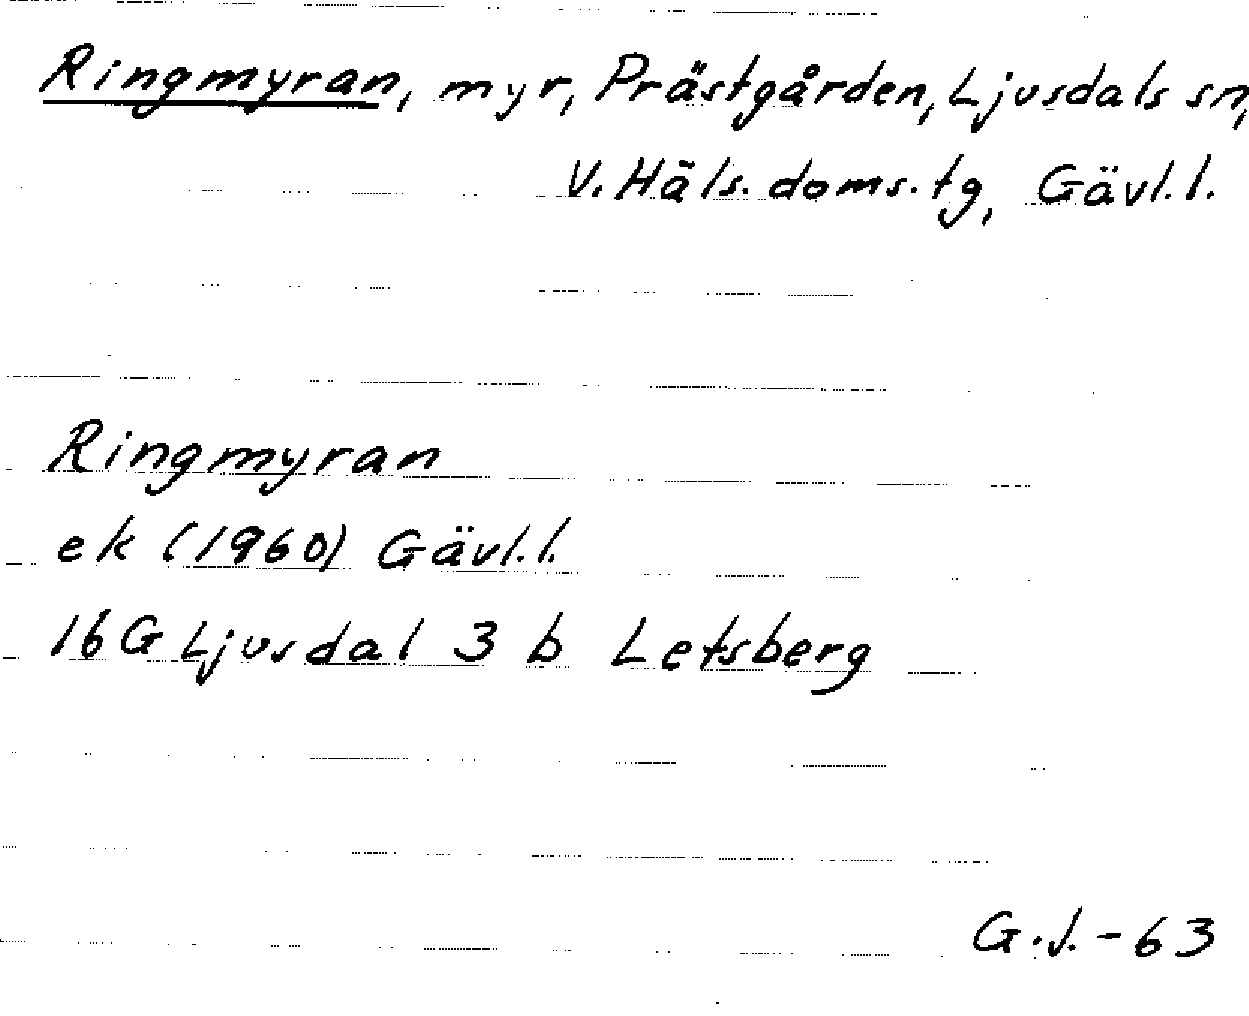 Ringmyran, myr, Prästgården, Ljusdals sn,
V. Häls. doms. tg, Gävl. l.
Ringmyran
ek (1960) Gävl. l.
16 G Ljusdal 3 b Letsberg
G.J. - 63